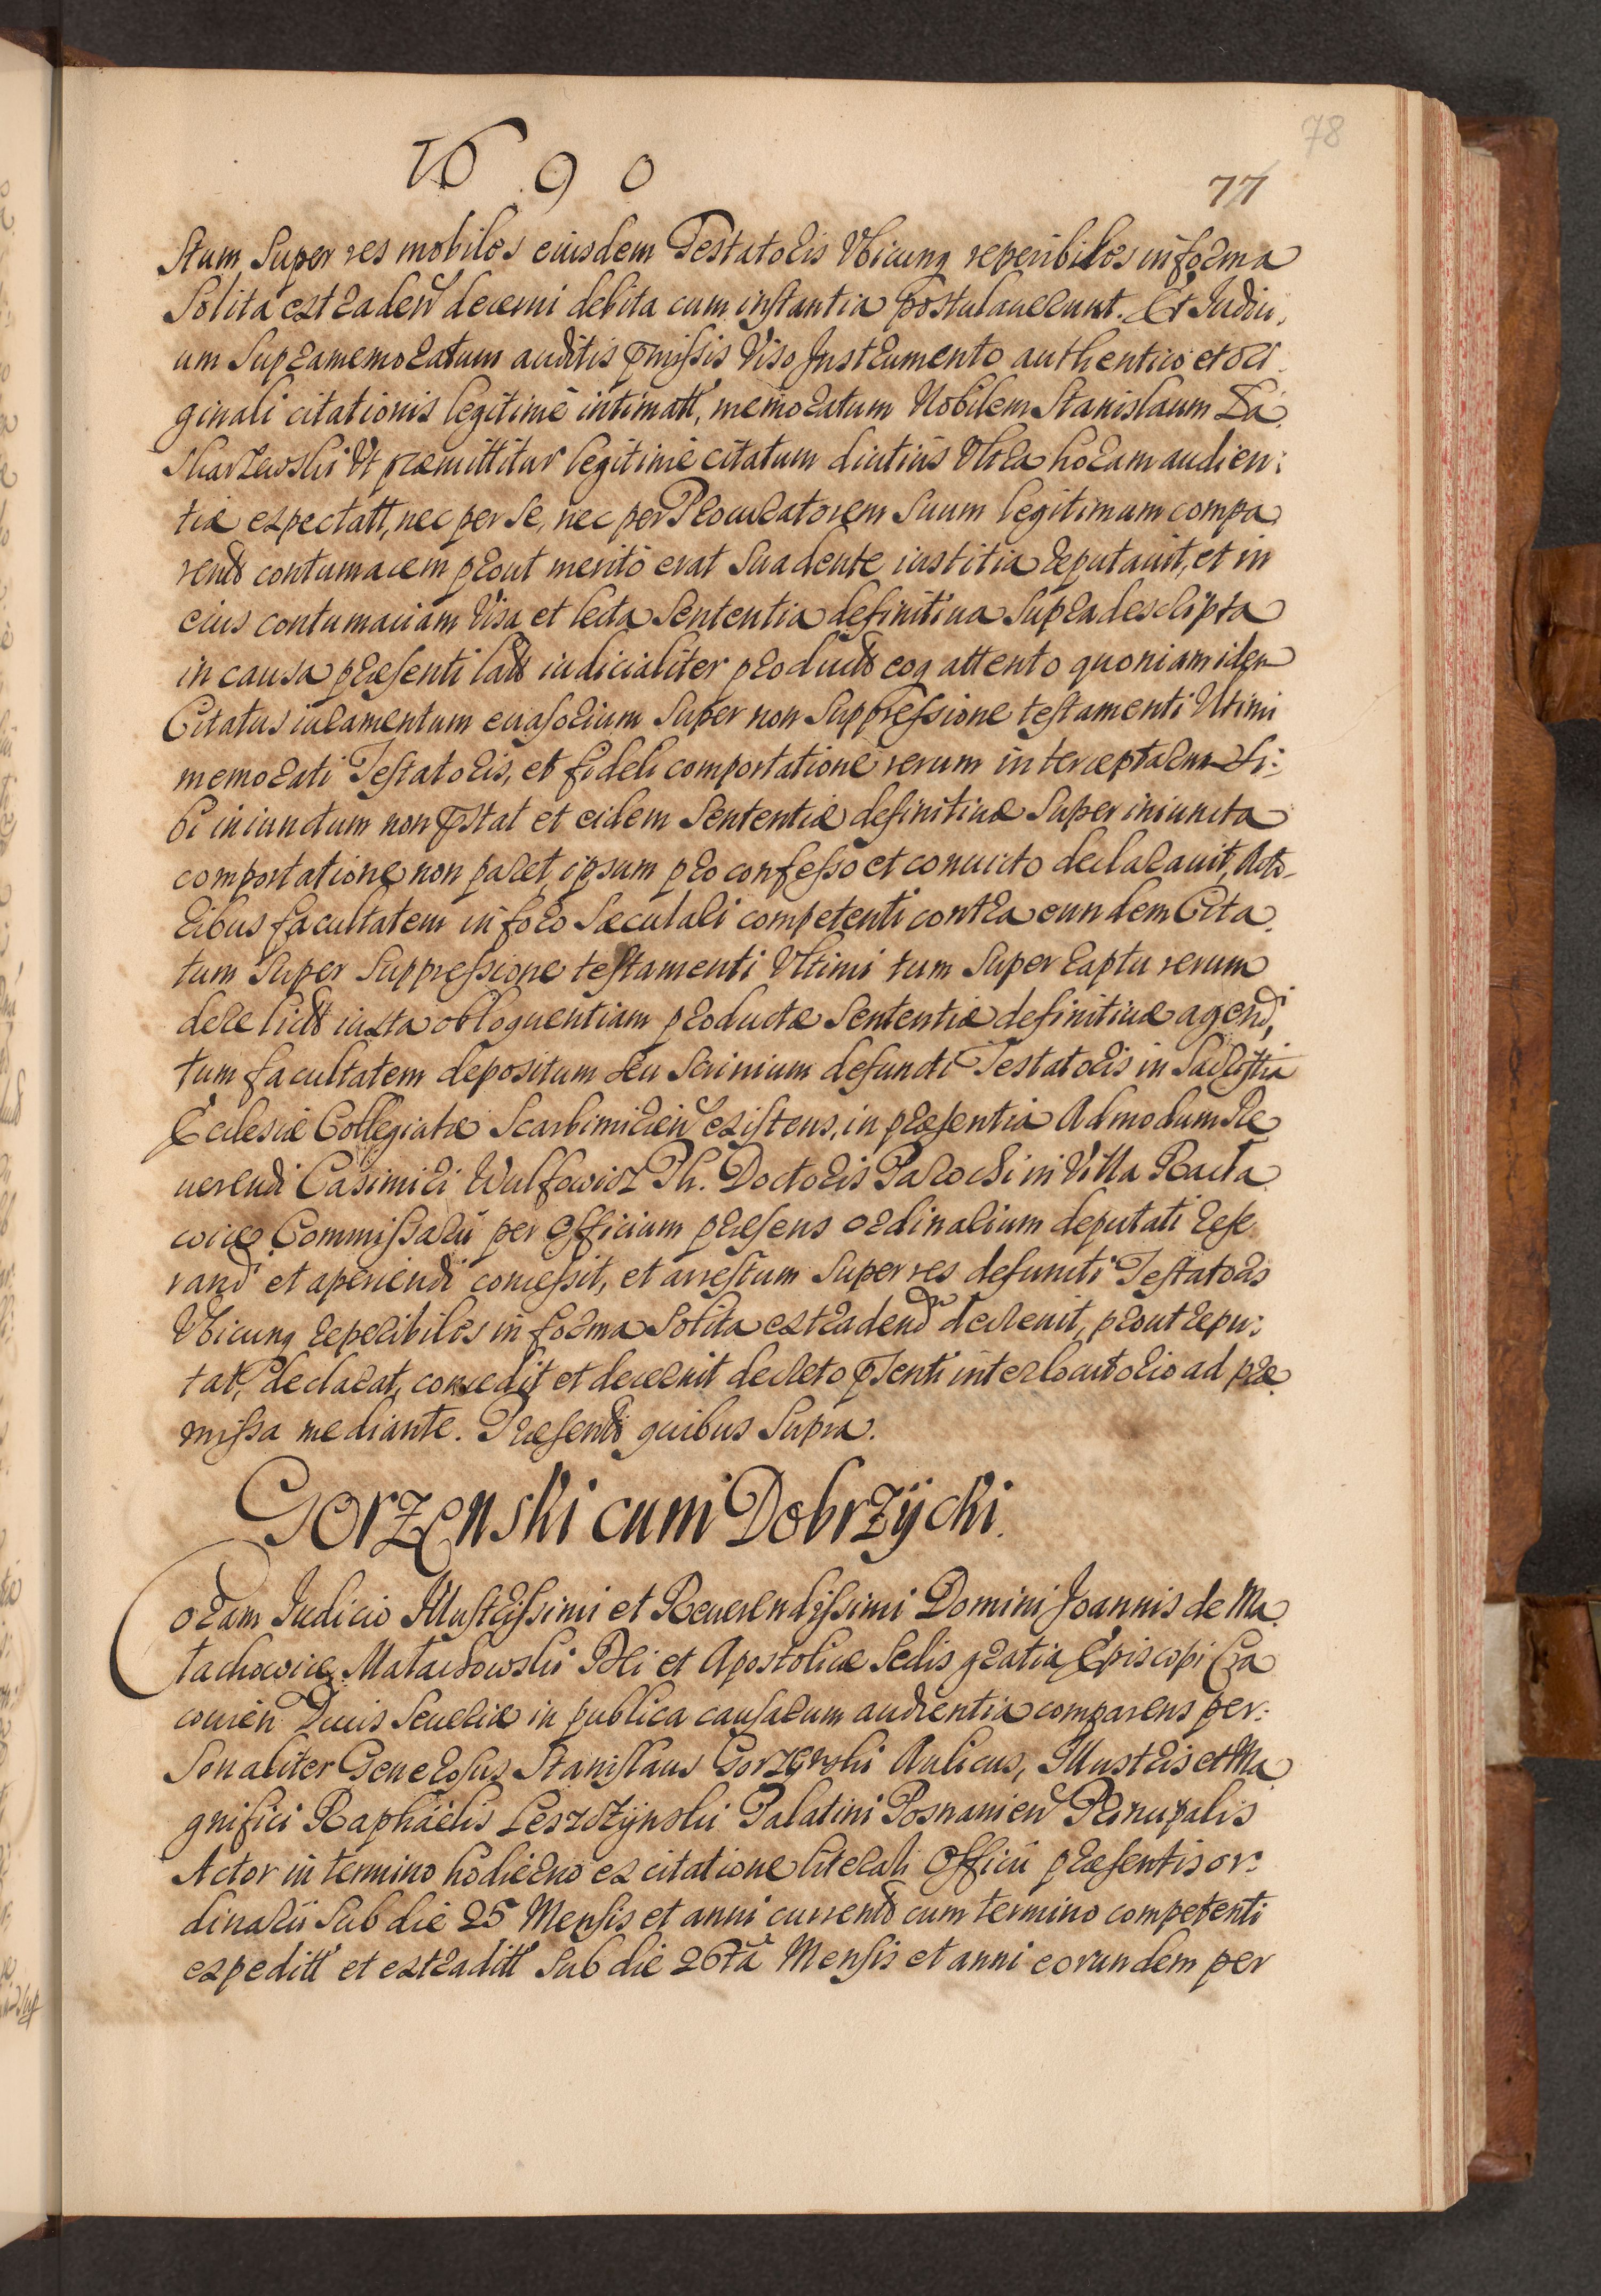 78
1690
77
stum super res mobiles eiusdem Testatoris Vbicunq reperibiles in forma
solita extraden decerni debita cum instantia postulauerunt. Et Iudici,
um supramemoratum auditis pmissis Viso Instrumento authentico et ori,
ginali citationis legitime intimatt, memoratum Nobilem Stanislaum Za,
skarzewski Vt præmittitur legitime citatum diutius Vltra horam audien:
tiæ expectatt, nec per se, nec per Procuratorem suum legitimum compa,
rents contumacem prout merito erat suadente iustitia reputauit, et in
eius contumaciam Visa et lecta sententia definitiua supradescripta
in causa præsenti lats iudicialiter products eoq attento quoniam idem
Citatus iuramentum euasorium super non suppressione testamenti Vltimi
memorati Testatoris, et fideli comportatione rerum interceptarum si:
bi iniunctum non pstat et eidem sententiæ definitiuæ super iniuncta
comportatione non paret, ipsum pro confesso et conuicto declarauit, Acto-
ribus facultatem in foro sæculari competenti contra eundem Cita,
tum super suppressione testamenti Vltimi tum super raptu rerum
derelicts iuxta obloquentiam productæ sententiæ definitiuæ agendi,
tum facultatem depositum seu scrinium defuncti Testatoris in sacristia
Ecclesiæ Collegiatæ Scarbimirien existens, in præsentia Admodum Re,
uerendi Casimiri Wulfowicz Ph. Doctoris Parochi in Villa Racła,
wice Commissarii per Officium præsens ordinarium deputati rese,
randi et aperiendi concessit, et arrestum super res defuncti Testatoris
Vbicunq reperibiles in forma solita extradend decreuit, prout repu:
tat, declarat, concedit et decernit decreto psenti interlocutorio ad præ,
missa mediante. Præsents quibus supra.
Gorzenski cum Dobrzÿcki.
Coram Iudicio Illustrissimi et Reuerendissimi Domini Joannis de Ma,
łachowice Małachowski Dei et Apostolicæ Sedis gratia Episcopi Cra,
couien Ducis Seueriæ in publica causarum audientia comparens per:
sonaliter Generosus Stanislaus Gorzenski Aulicus, Illustris et Ma,
gnifici Raphaëlis Leszczÿnski Palatini Posnanien Principalis
Actor in termino hodierno ex citatione literali Officii præsentis or:
dinarii sub die 25 Mensis et anni currents cum termino competenti
expeditt et extraditt sub die 26ta Mensis et anni eorundem per